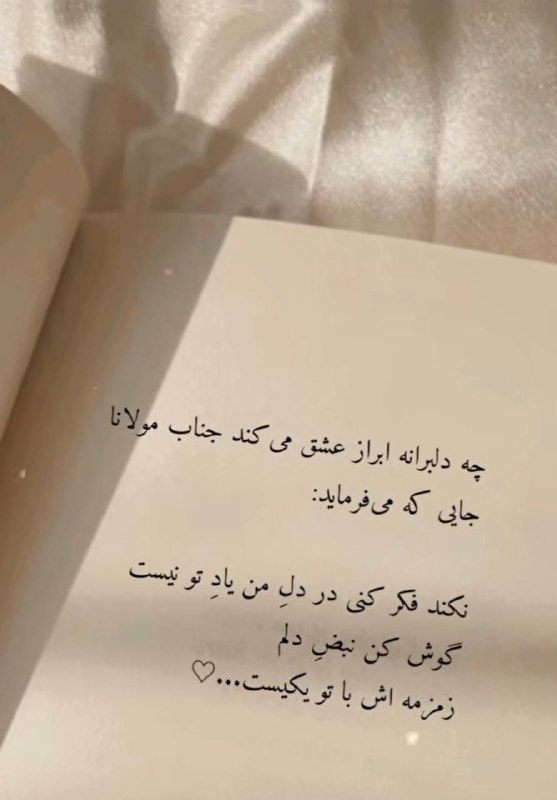 چه دلبرانه ابراز عشق می‌کند جناب مولانا
جایی که می‌فرماید:
نکند فکر کنی در دلِ من یادِ تو نیست
گوش کن نبضِ دلم
زمزمه اش با تو یکیست...♡